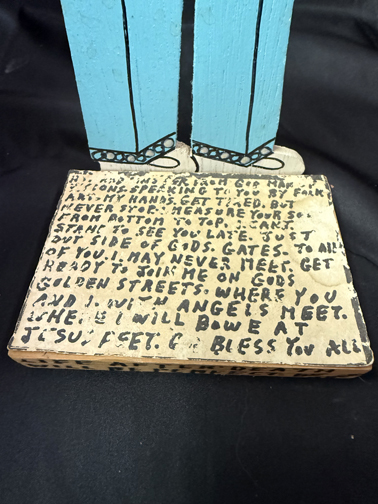 FROM GOD MAN
VISIONS. SPEAKING TO YOU BY FOLK
ART. MY HANDS. GET TIRED. BUT
NEVER STOP. MEASURE YOUR SOUL
FROM BOTTOM TO TOP. I CANT.
STAND TO SEE YOU LATE. JUST
OUT SIDE OF GODS. GATES. TO ALL
OF YOU. I MAY NEVER MEET. GET
READY TO JOIN ME ON GODS
GOLDEN STREETS. WHERE YOU
AND I. WITH ANGELS MEET.
WHERE I WILL BOWE AT
JESUS FEET. GOD BLESS YOU ALL